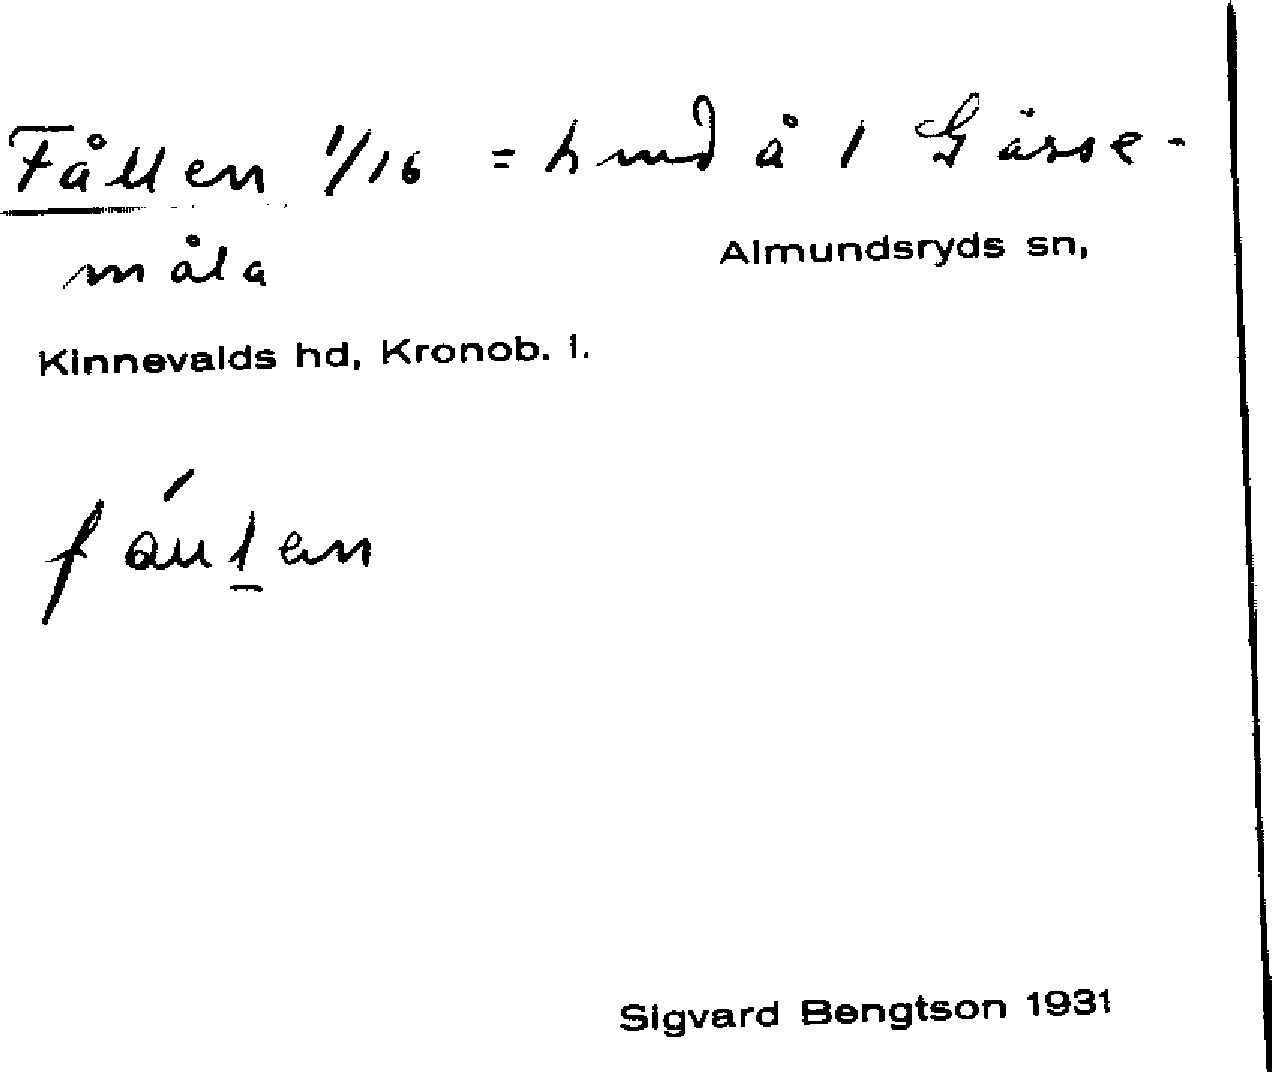 Fållen 1/16 = hmd å 1 Gässe-
måla
Almundsryds sn,
Kinnevalds hd, Kronob. l.
Sigvard Bengtson 1931